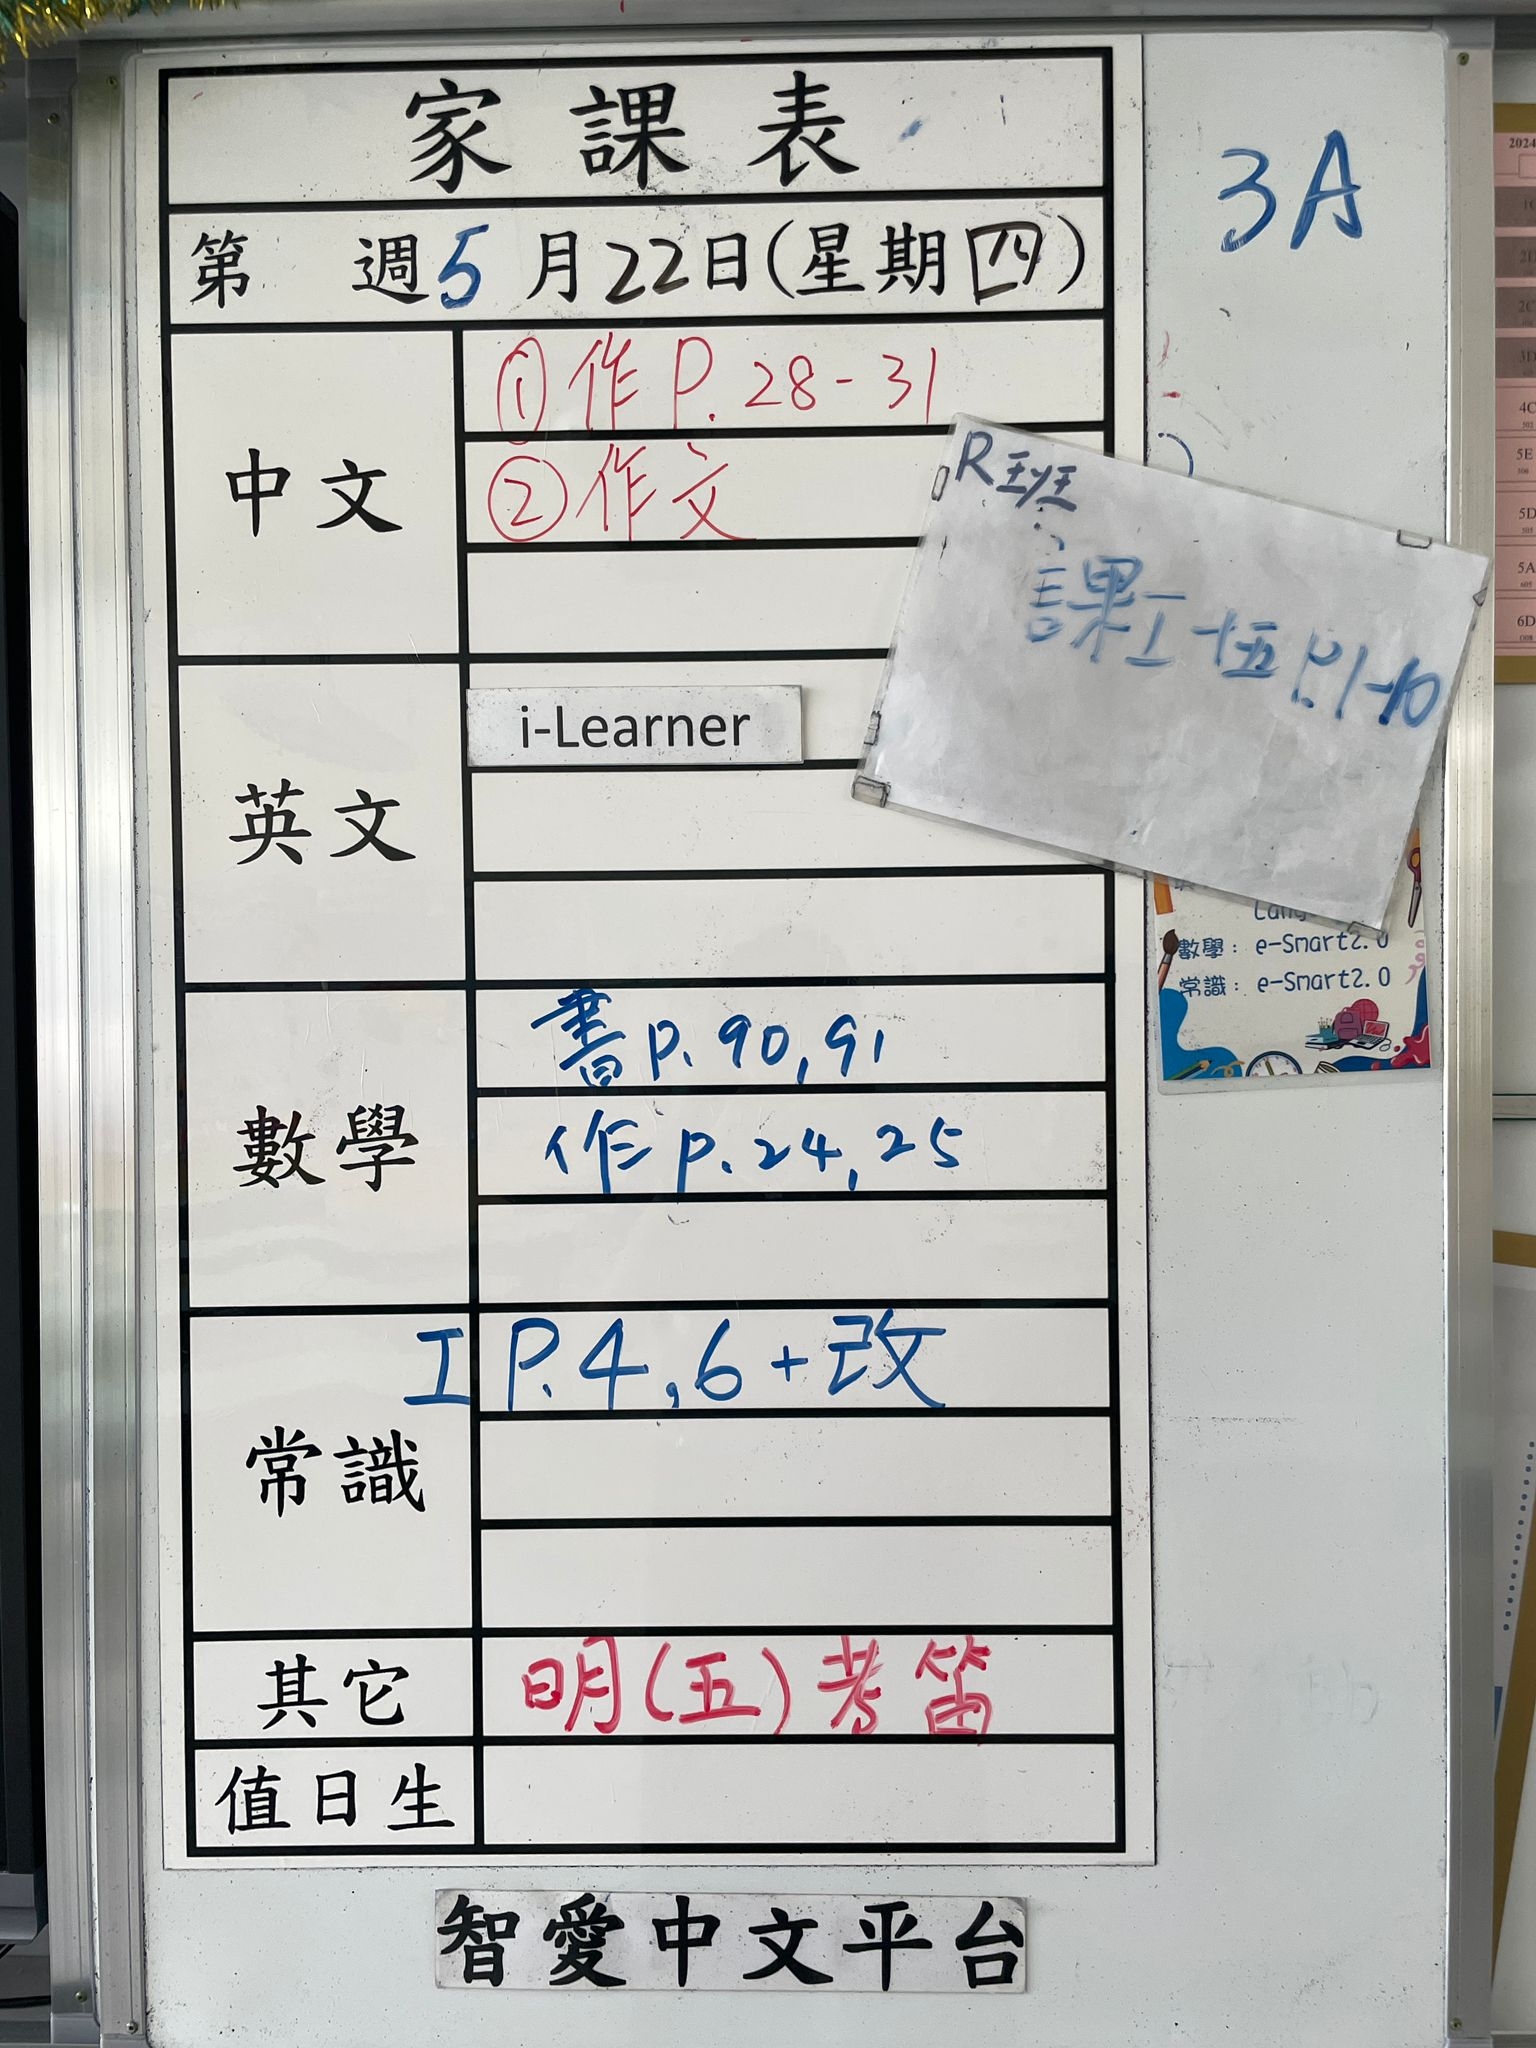 家課表
3A
第 週5月22日(星期四)
中文
①作P.28-31
②作文
R班
課工十五P.1-10
英文
i-Learner
數學: e-Smart2.0
常識: e-Smart2.0
數學
書p.90,91
作p.24,25
常識
工P.4,6+改
其它
明(五)考笛
值日生
智愛中文平台
2024
4C
5E
5D
5A
6D